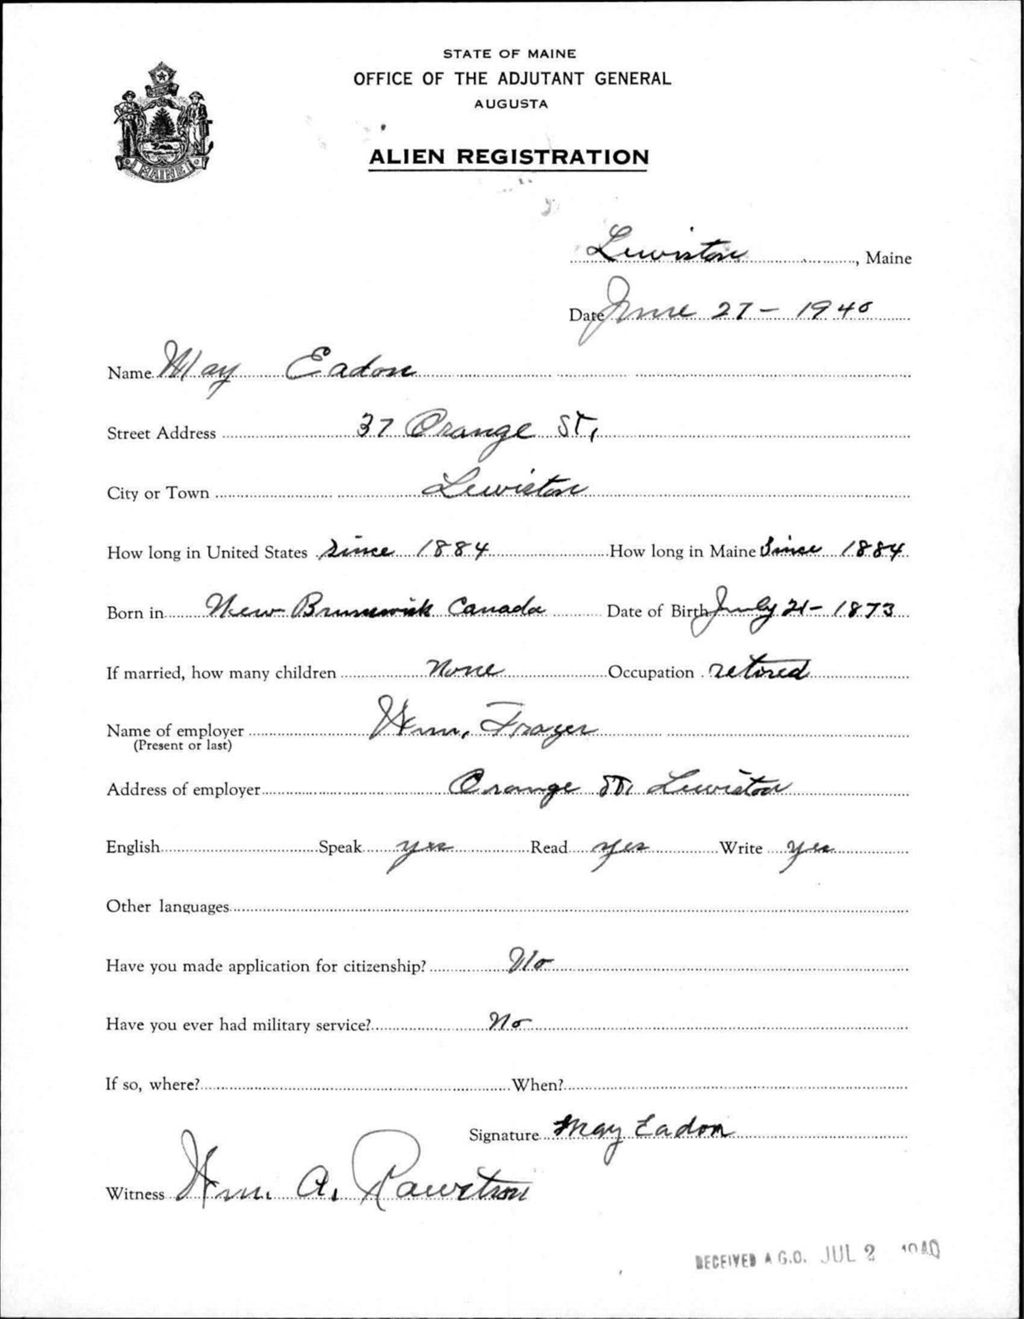 STATE OF MAINE
OFFICE OF THE ADJUTANT GENERAL
AUGUSTA
ALIEN REGISTRATION
MAINE
Lewiston, Maine
Date June 27 - 1940
Name May Eadon
Street Address 37 Orange St,
City or Town Lewiston
How long in United States Since 1884 How long in Maine Since 1884
Born in New Brunswick Canada Date of Birth July 21 - 1873
If married, how many children None Occupation retired
Name of employer Wm. Frager
(Present or last)
Address of employer Orange St, Lewiston
English Speak yes Read yes Write yes
Other languages
Have you made application for citizenship? No
Have you ever had military service? No
If so, where? When?
Signature May Eadon
Witness Wm. A. Rawstron
RECEIVED A.G.O. JUL 2 1940